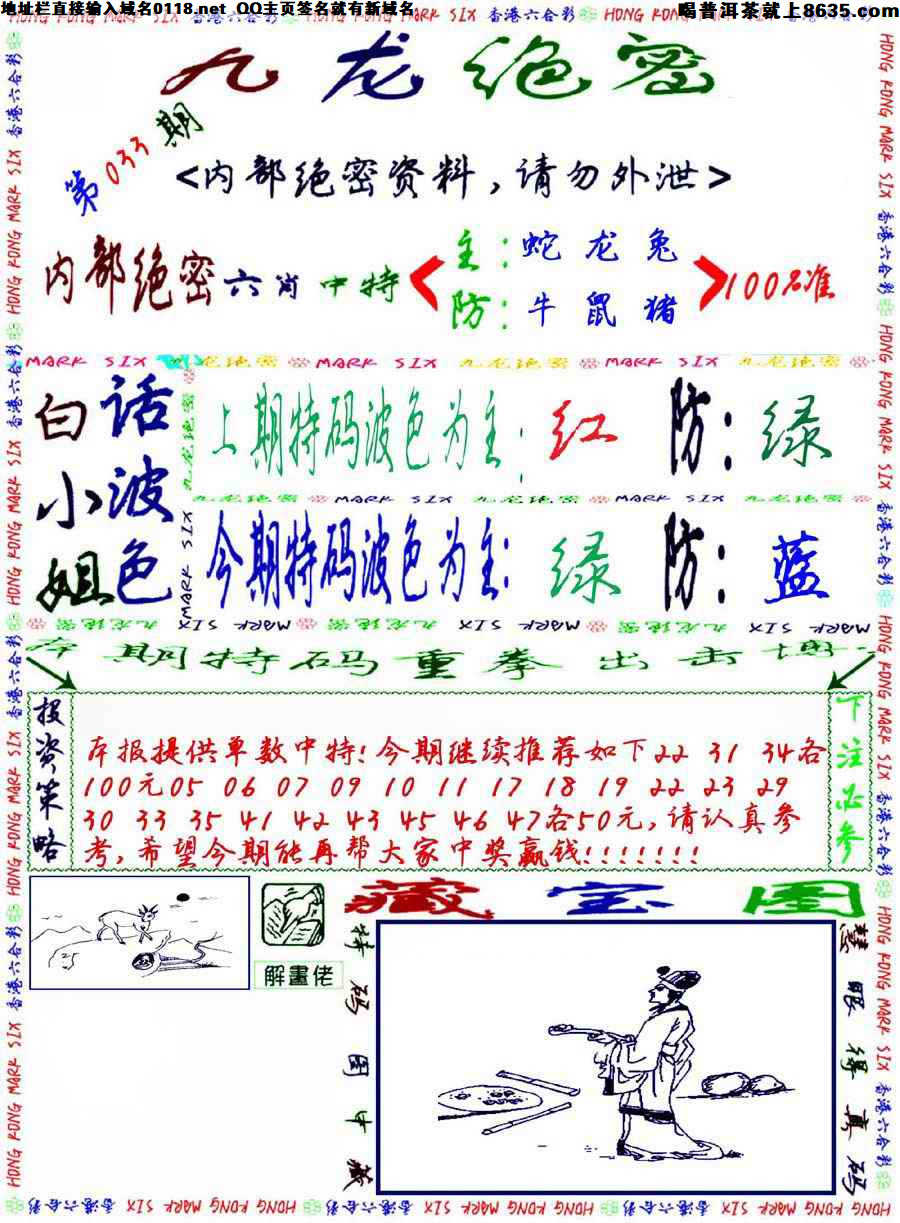 地址栏直接输入域名0118.net QQ主页签名就有新域名
喝普洱茶就上8635.com
HONG KONG MARK SIX 香港六合彩
九龙绝密
第033期
<内部绝密资料,请勿外泄>
内部绝密六肖中特
主:蛇 龙 兔
防:牛 鼠 猪
100%准
MARK SIX 九龙绝密 MARK SIX 九龙绝密 MARK SIX 九龙绝密
白话
小波
姐色
上期特码波色为主:红 防:绿
九龙绝密 MARK SIX 九龙绝密 MARK SIX 九龙绝密
今期特码波色为主:绿 防:蓝
本期特码重拳出击
投资策略
本报提供单数中特!今期继续推荐如下22 31 34各
100元05 06 07 09 10 11 17 18 19 22 23 29
30 33 35 41 42 43 45 46 47各50元,请认真参
考,希望今期能再帮大家中奖赢钱!!!!!!!
下注必参
解畫佬
藏宝图
特码图中藏
慧眼得真码